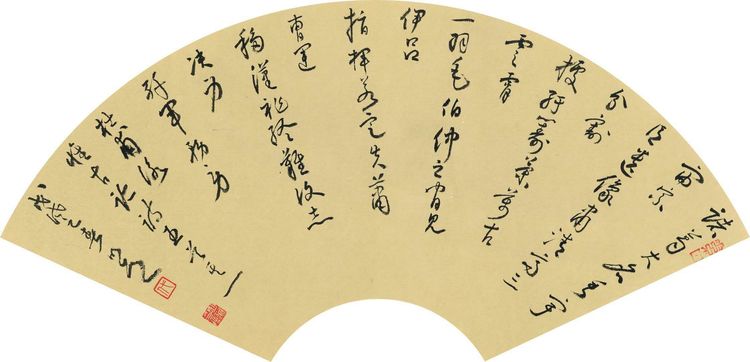 諸葛大名垂宇
宙宗
臣遺像肅清高三
分割
據紆籌策萬古
雲霄
一羽毛伯仲之間見
伊呂
指揮若定失蕭
曹運
移漢祚終難復志
決身
殲軍務勞
杜甫詠
懷古跡詩五首其一